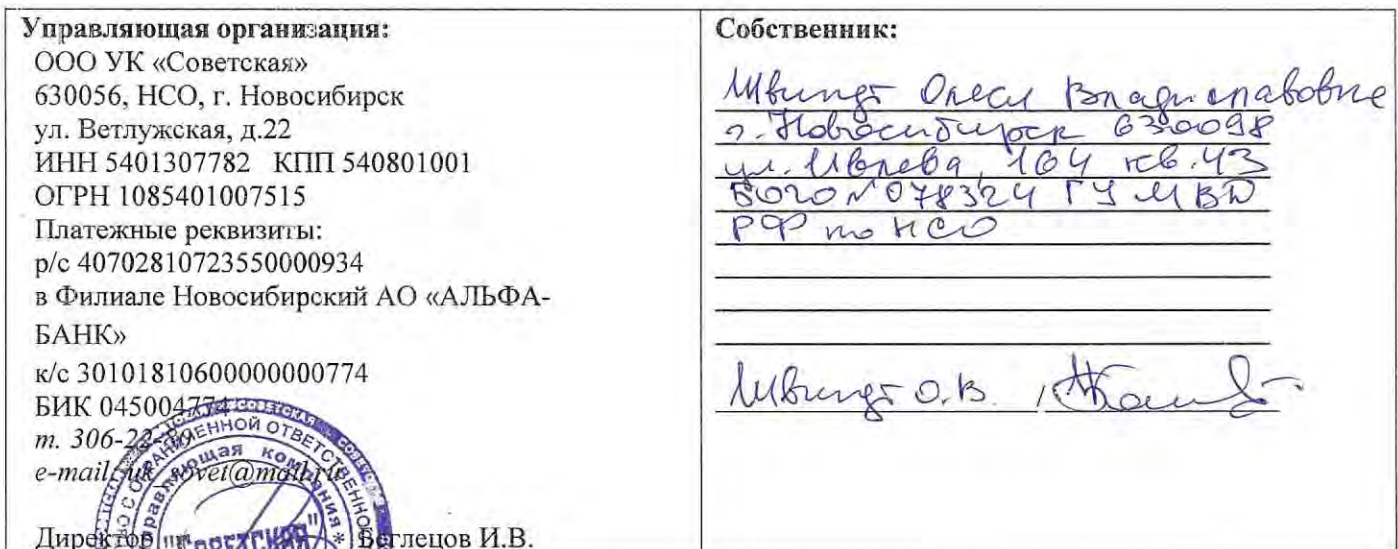 Управляющая организация:
ООО УК «Советская»
630056, НСО, г. Новосибирск
ул. Ветлужская, д.22
ИНН 5401307782 КПП 540801001
ОГРН 1085401007515
Платежные реквизиты:
р/с 40702810723550000934
в Филиале Новосибирский АО «АЛЬФА-
БАНК»
к/с 30101810600000000774
БИК 045004774
т. 306-22-89
e-mail: uk_sovet@mail.ru
Директор Беглецов И.В.
управляющая компания
"СОВЕТСКАЯ"
Собственник:
Швиндт Олеся Владиславовна
г. Новосибирск 630098
ул. 164 кв. 43
078324 ГУ МВД
РФ по НСО
Швиндт О.В.